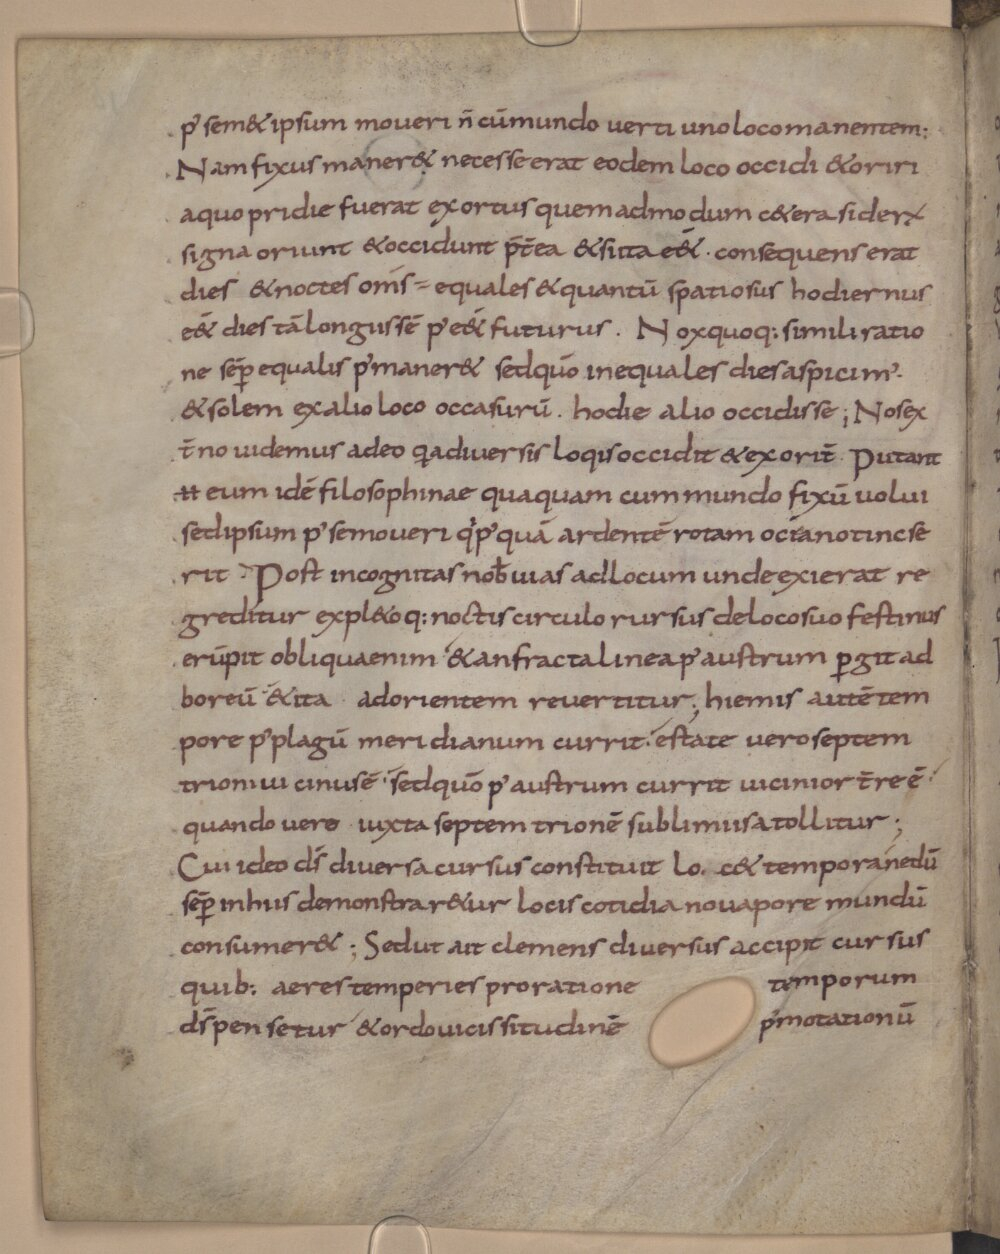 p̄ sem&ipsum moueri n̄ cūmundo uerti unolocomanentem:
Namfixus maner& necesseerat eodem loco occidi &oriri
aquo pridie fuerat exortus quemadmodum c&era sider
signa oriunt &occidunt p̄t̄ea &sitita e& · consequens erat
dies &noctes om̄s equales &quantū spatiosus hodiernus
e& dies tālongussē p̄ e& futurus . Noxquoq: simili ratio
ne sēp equalis p̄maner& sedquō inequales diesaspicim᾽.
&solem exalioloco occasurū . hodie alio occidisse ; Nosex
t̄no uidemus adeo q̄adiuersis loqisoccidit &exorit̄ Putant
eum idē filosophinae quaquam cummundo fixū uolui
sedipsum p̄ semoueri q̄p̄quā ardentē rotam ociānotincse
rit Post incognitasnob̄ uias adlocum undeexierat re
greditur expl&oq: noctiscirculo rursus delocosuo festinus
erūpit obliquaenim &anfractalinea p̄ austrum pgit ad
boreū &ita adorientem reuertitur ; hiemis autē tem
pore p̄plagū meridianum currit . estate ueroseptem
trioni uicinusē sedquō p̄ austrum currit uicinior t̄re ē
quando uero iuxta septem trionē sublimusatollitur ;
Cui ideo d̄s diuersa cursus constituit lo. c& temporanedū
sēp inhiis demonstrar&ur locis cotidiano uapore mundū
consumer& ; Sedut ait clemens diuersus accipit cursus
quib: aerestemperies proratione temporum
d̄spensetur &ordouicissitudinē p̄motationū